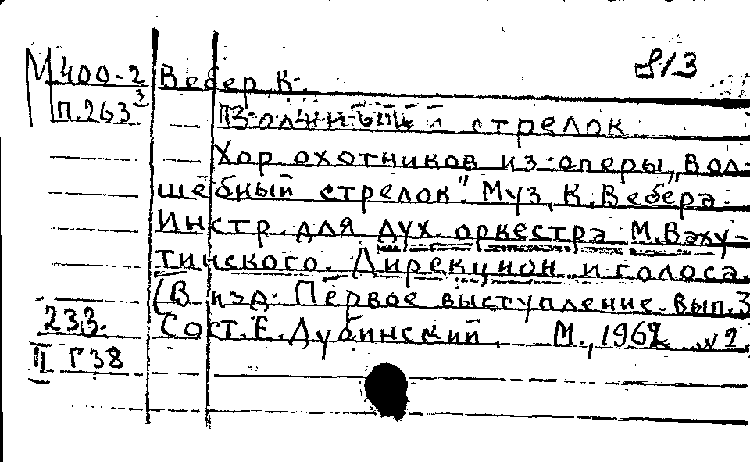 813
М 400-2 Вебер, К.
П. 263³
стрелок
Хор охотников из оперы „Вол-
шебный стрелок". Муз. К. Вебера.
Инстр. для дух. оркестра М. Ваху-
тинского. Дирекцион и голоса.
(В изд: Первое выступление. Вып. 3
233. Сост. Е. Дубинский. М., 1962
II Г38